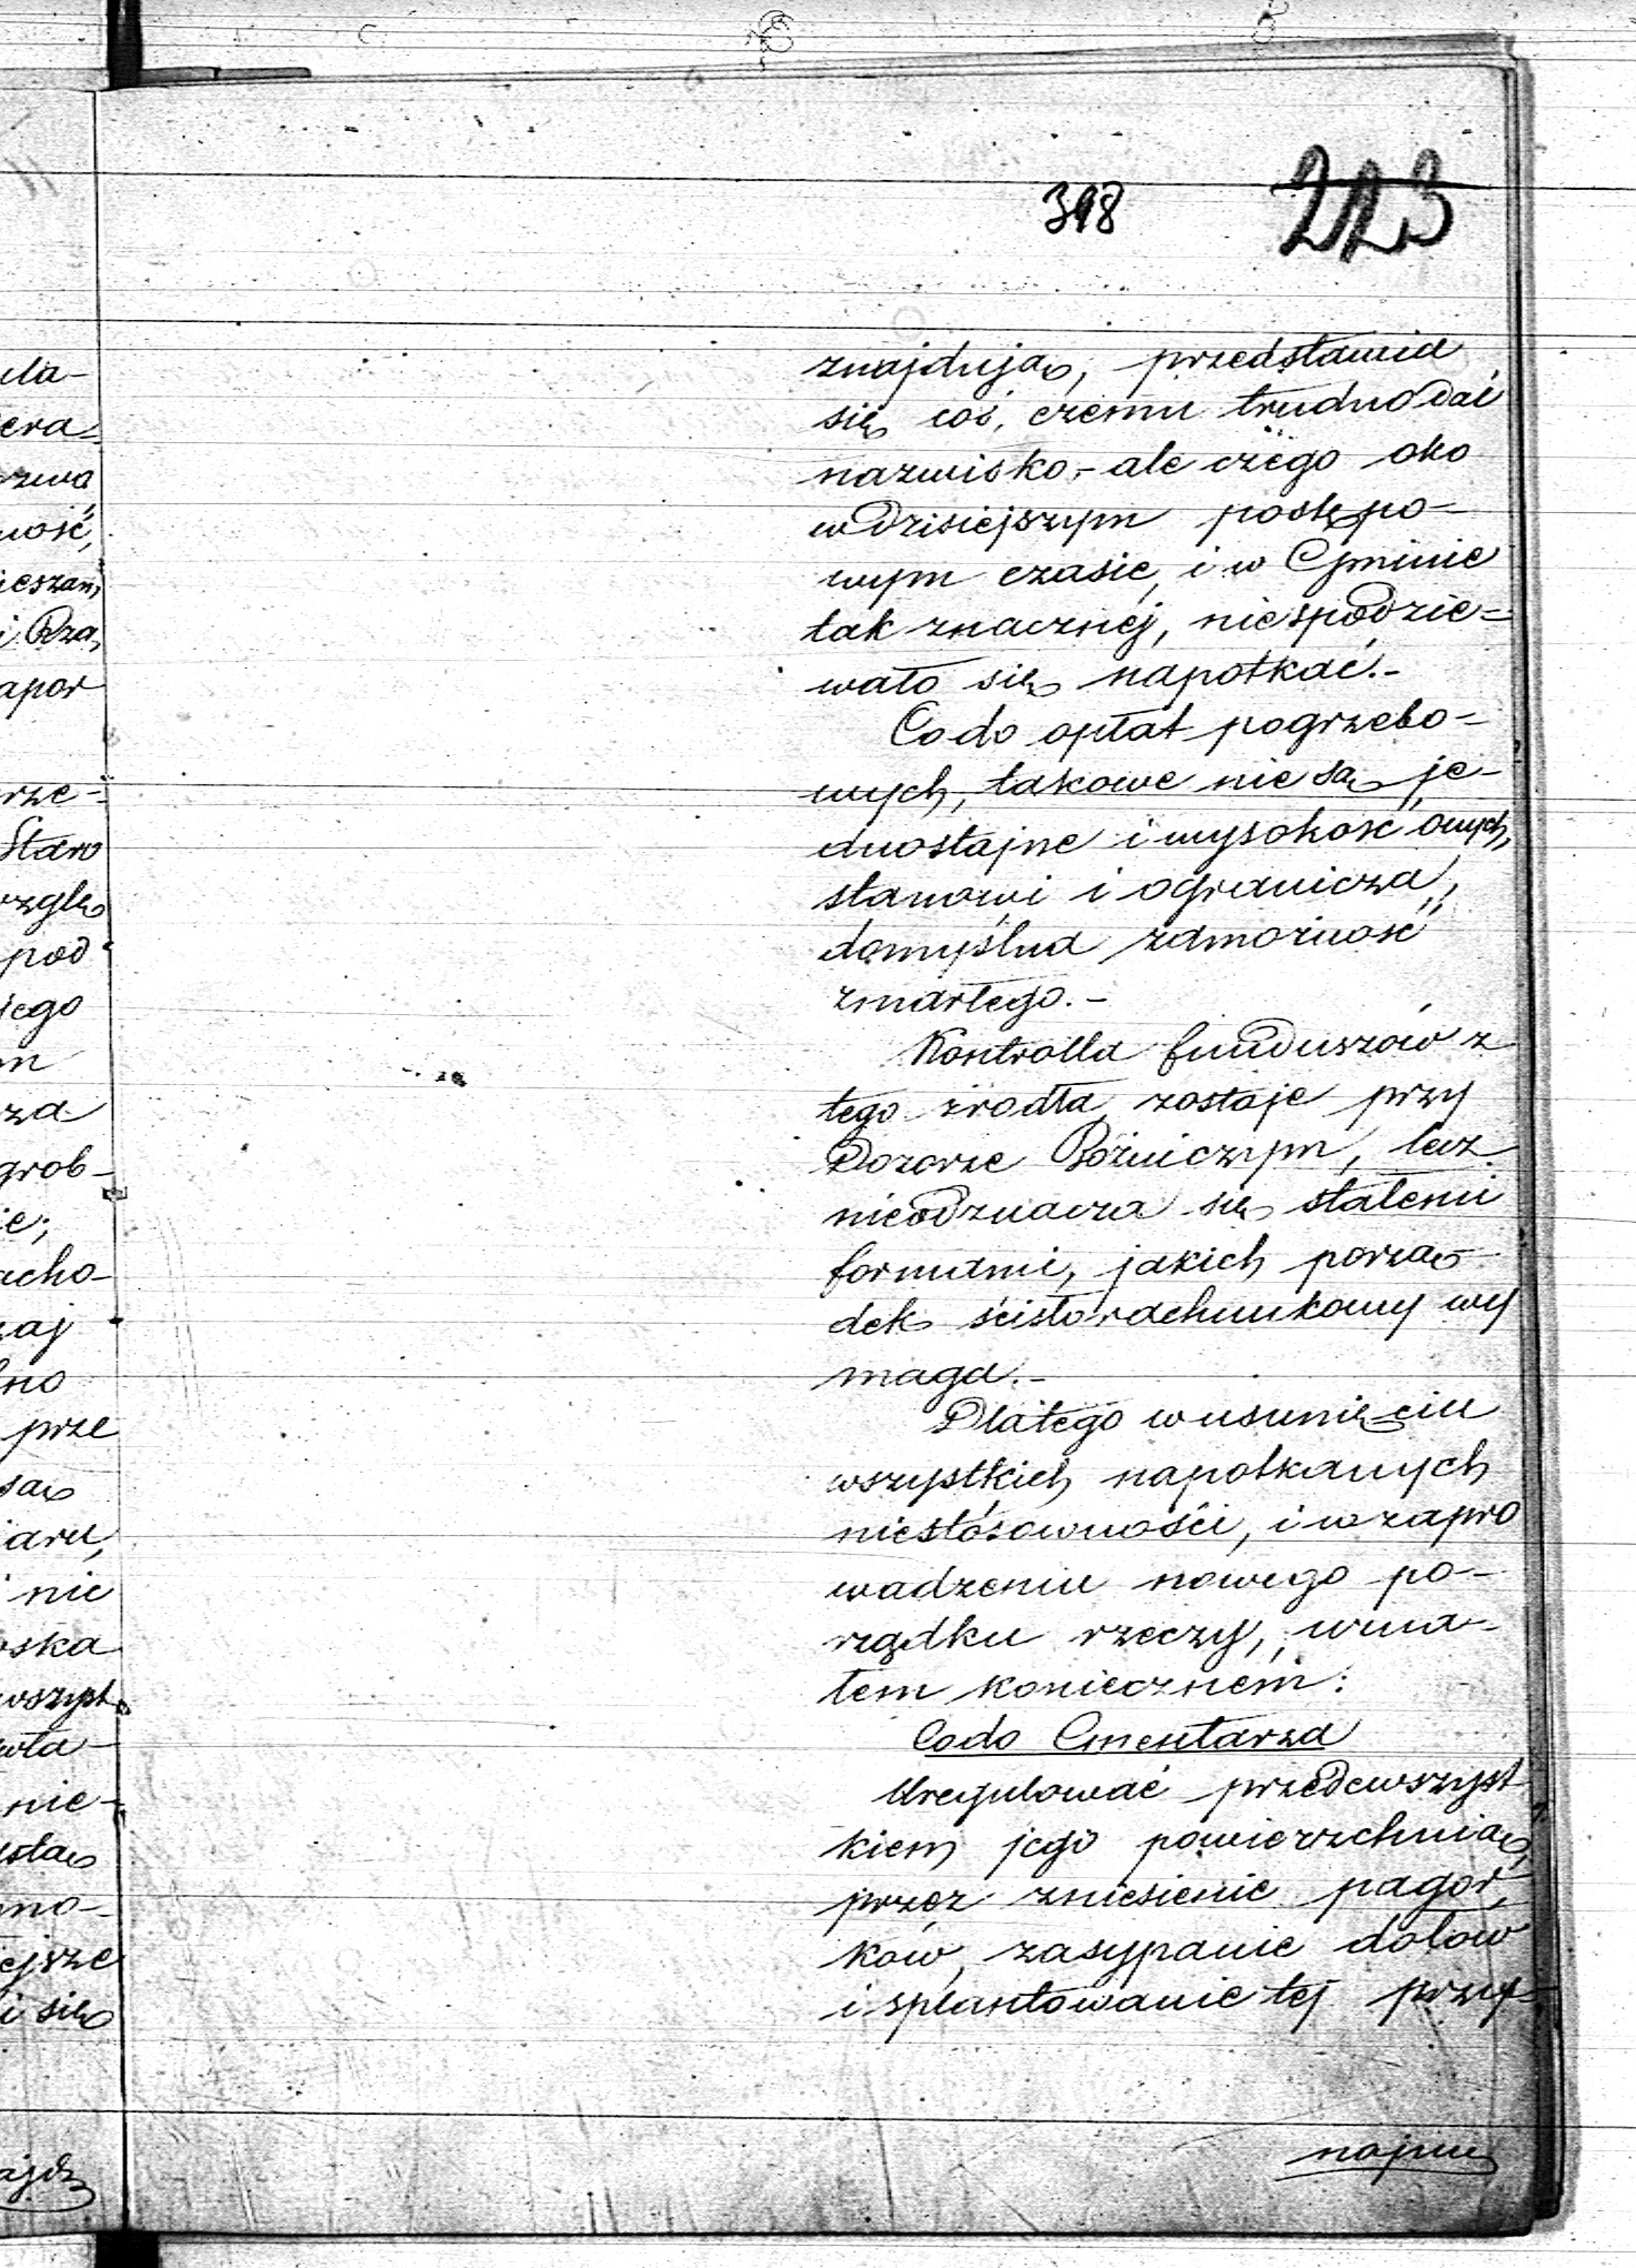 398 223
znajdują, przedstawia
się coś, czemu trudno dać
nazwisko,- ale czego oko
w dzisiejszym postępo-
wym czasie, i w Gminie
tak znacznej, niespodzie-
wało się napotkać.-
Co do opłat pogrzebo-
wych, takowe nie są je-
dnostajne i wysokość onych,
stanowi i ogranicza,
domyślna zamożność
zmarłego.-
Kontrolla funduszów z
tego źrodła, zostaje przy
Dozorze Bóżniczym, lecz
nieodznacza się stałemi
formami, jakich porzą-
dek ścisło rachunkowy wy
maga.-
Dlatego w usunięciu
wszystkich napotkanych
niestosowności, i w zapro
wadzeniu nowego po-
rządku rzeczy, uzna-
łem koniecznem:
Co do Cmentarza
Uregulować przedewszyst
kiem jego powierzchnią,
przez zniesienie pagór,
ków, zasypanie dołów
i splantowanie tej przy-
najmn
ula-
era-
zwa
ność,
ieszan,
i Rza,
apor
rze-
Staro
wzglę
pod
jego
m
za
grob-
ie;
acho-
zaj
lno
prze
są
iaru,
nie
oska
wszyst
wła-
nie-
stą
mo-
ejsze
i się
ajdu